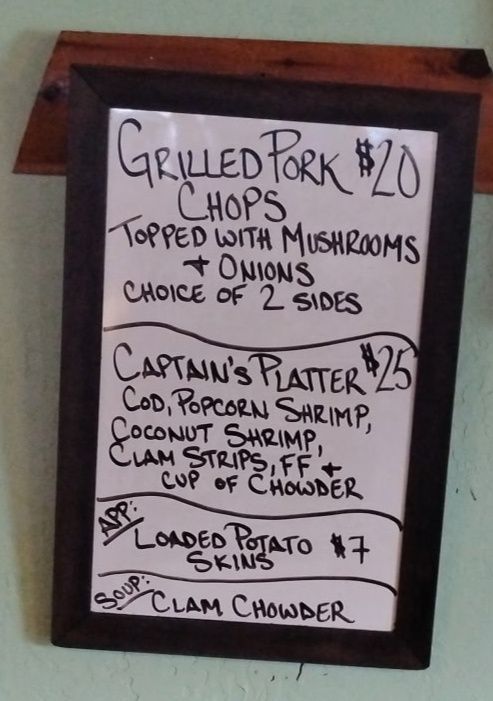 GRILLED PORK $20
CHOPS
TOPPED WITH MUSHROOMS
+ ONIONS
CHOICE OF 2 SIDES
CAPTAIN'S PLATTER $25
COD, POPCORN SHRIMP,
COCONUT SHRIMP,
CLAM STRIPS, FF +
CUP OF CHOWDER
APP: LOADED POTATO $7
SKINS
SOUP: CLAM CHOWDER